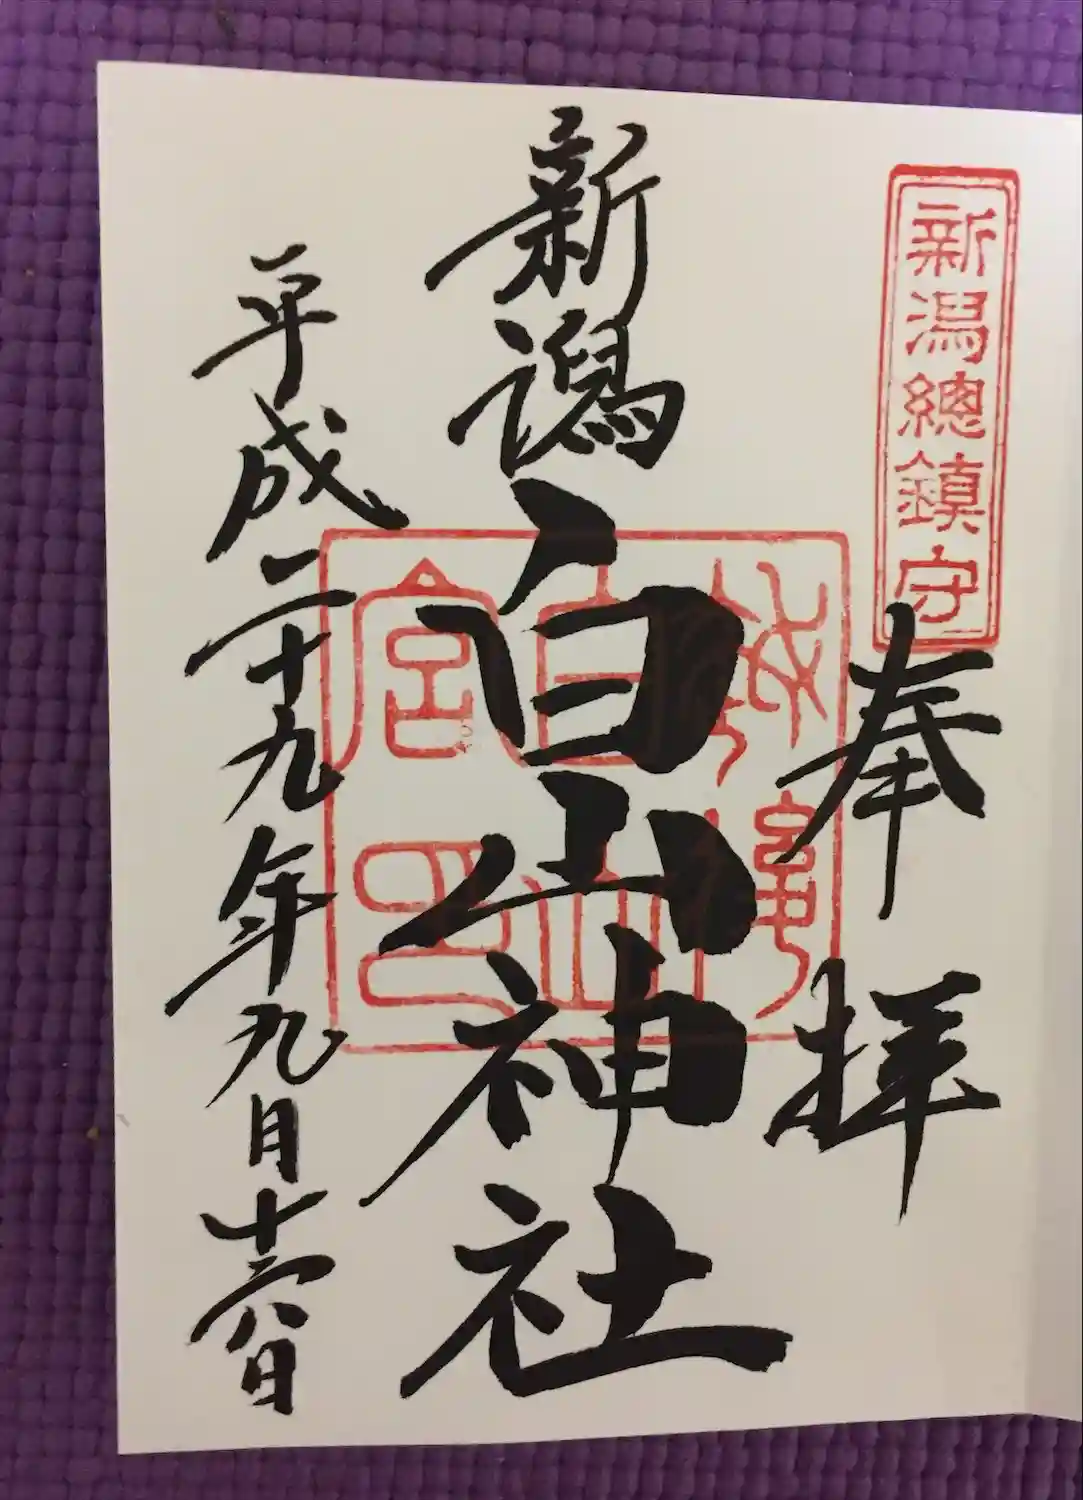 新潟總鎮守
奉拝
白山
宮印
新潟白山神社
平成二十九年九月十六日